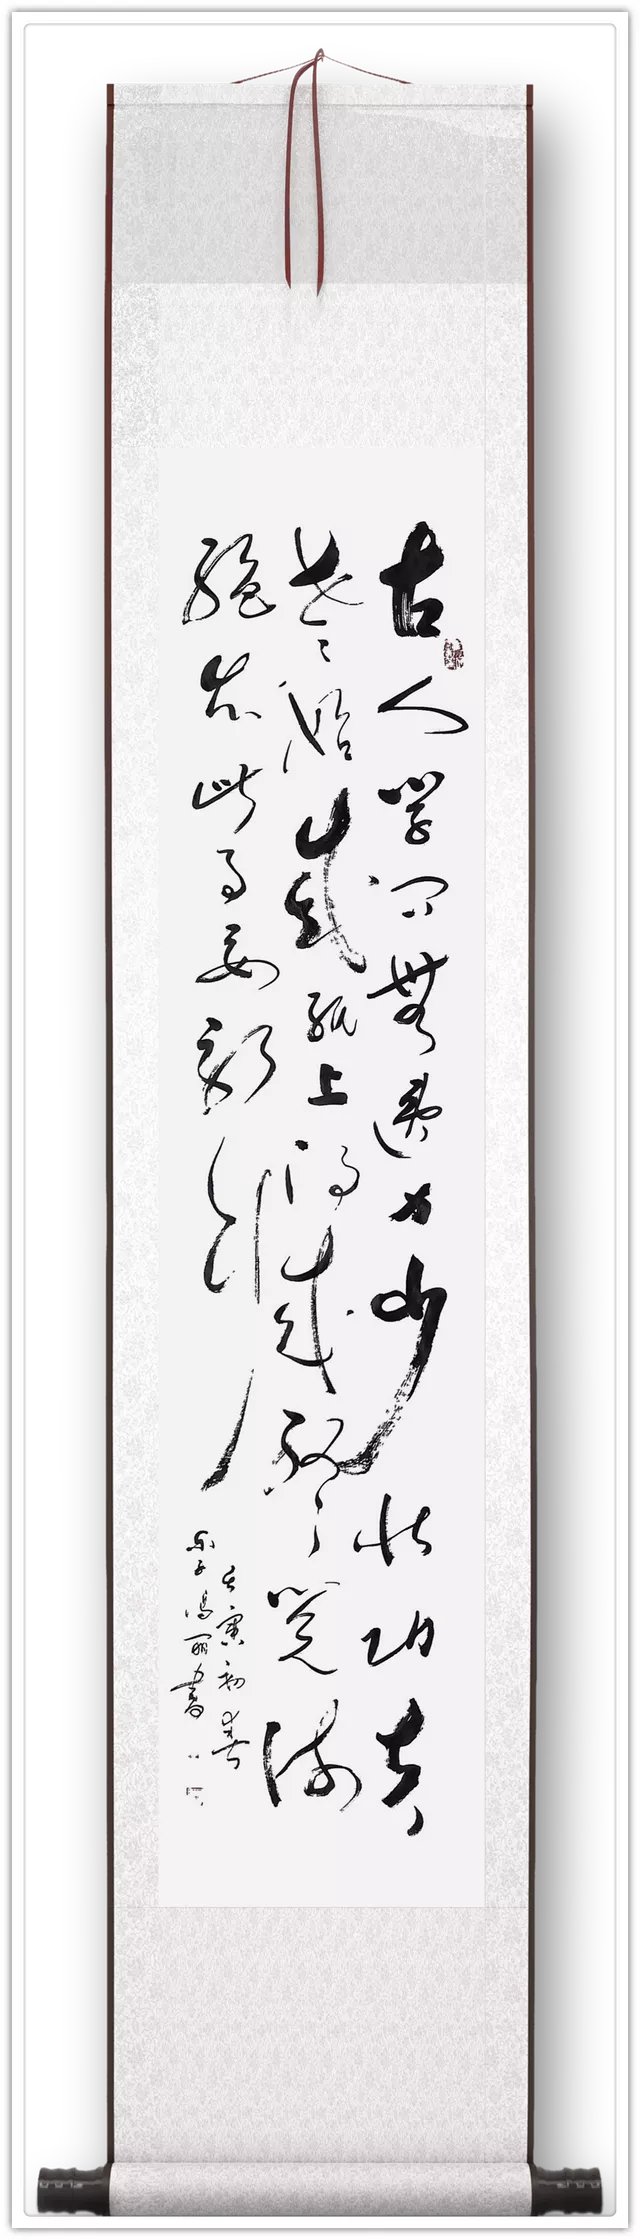 古人学问無遺力少壮功夫
老始成纸上得来终觉浅
绝知此事要躬行
壬寅初春
丽書